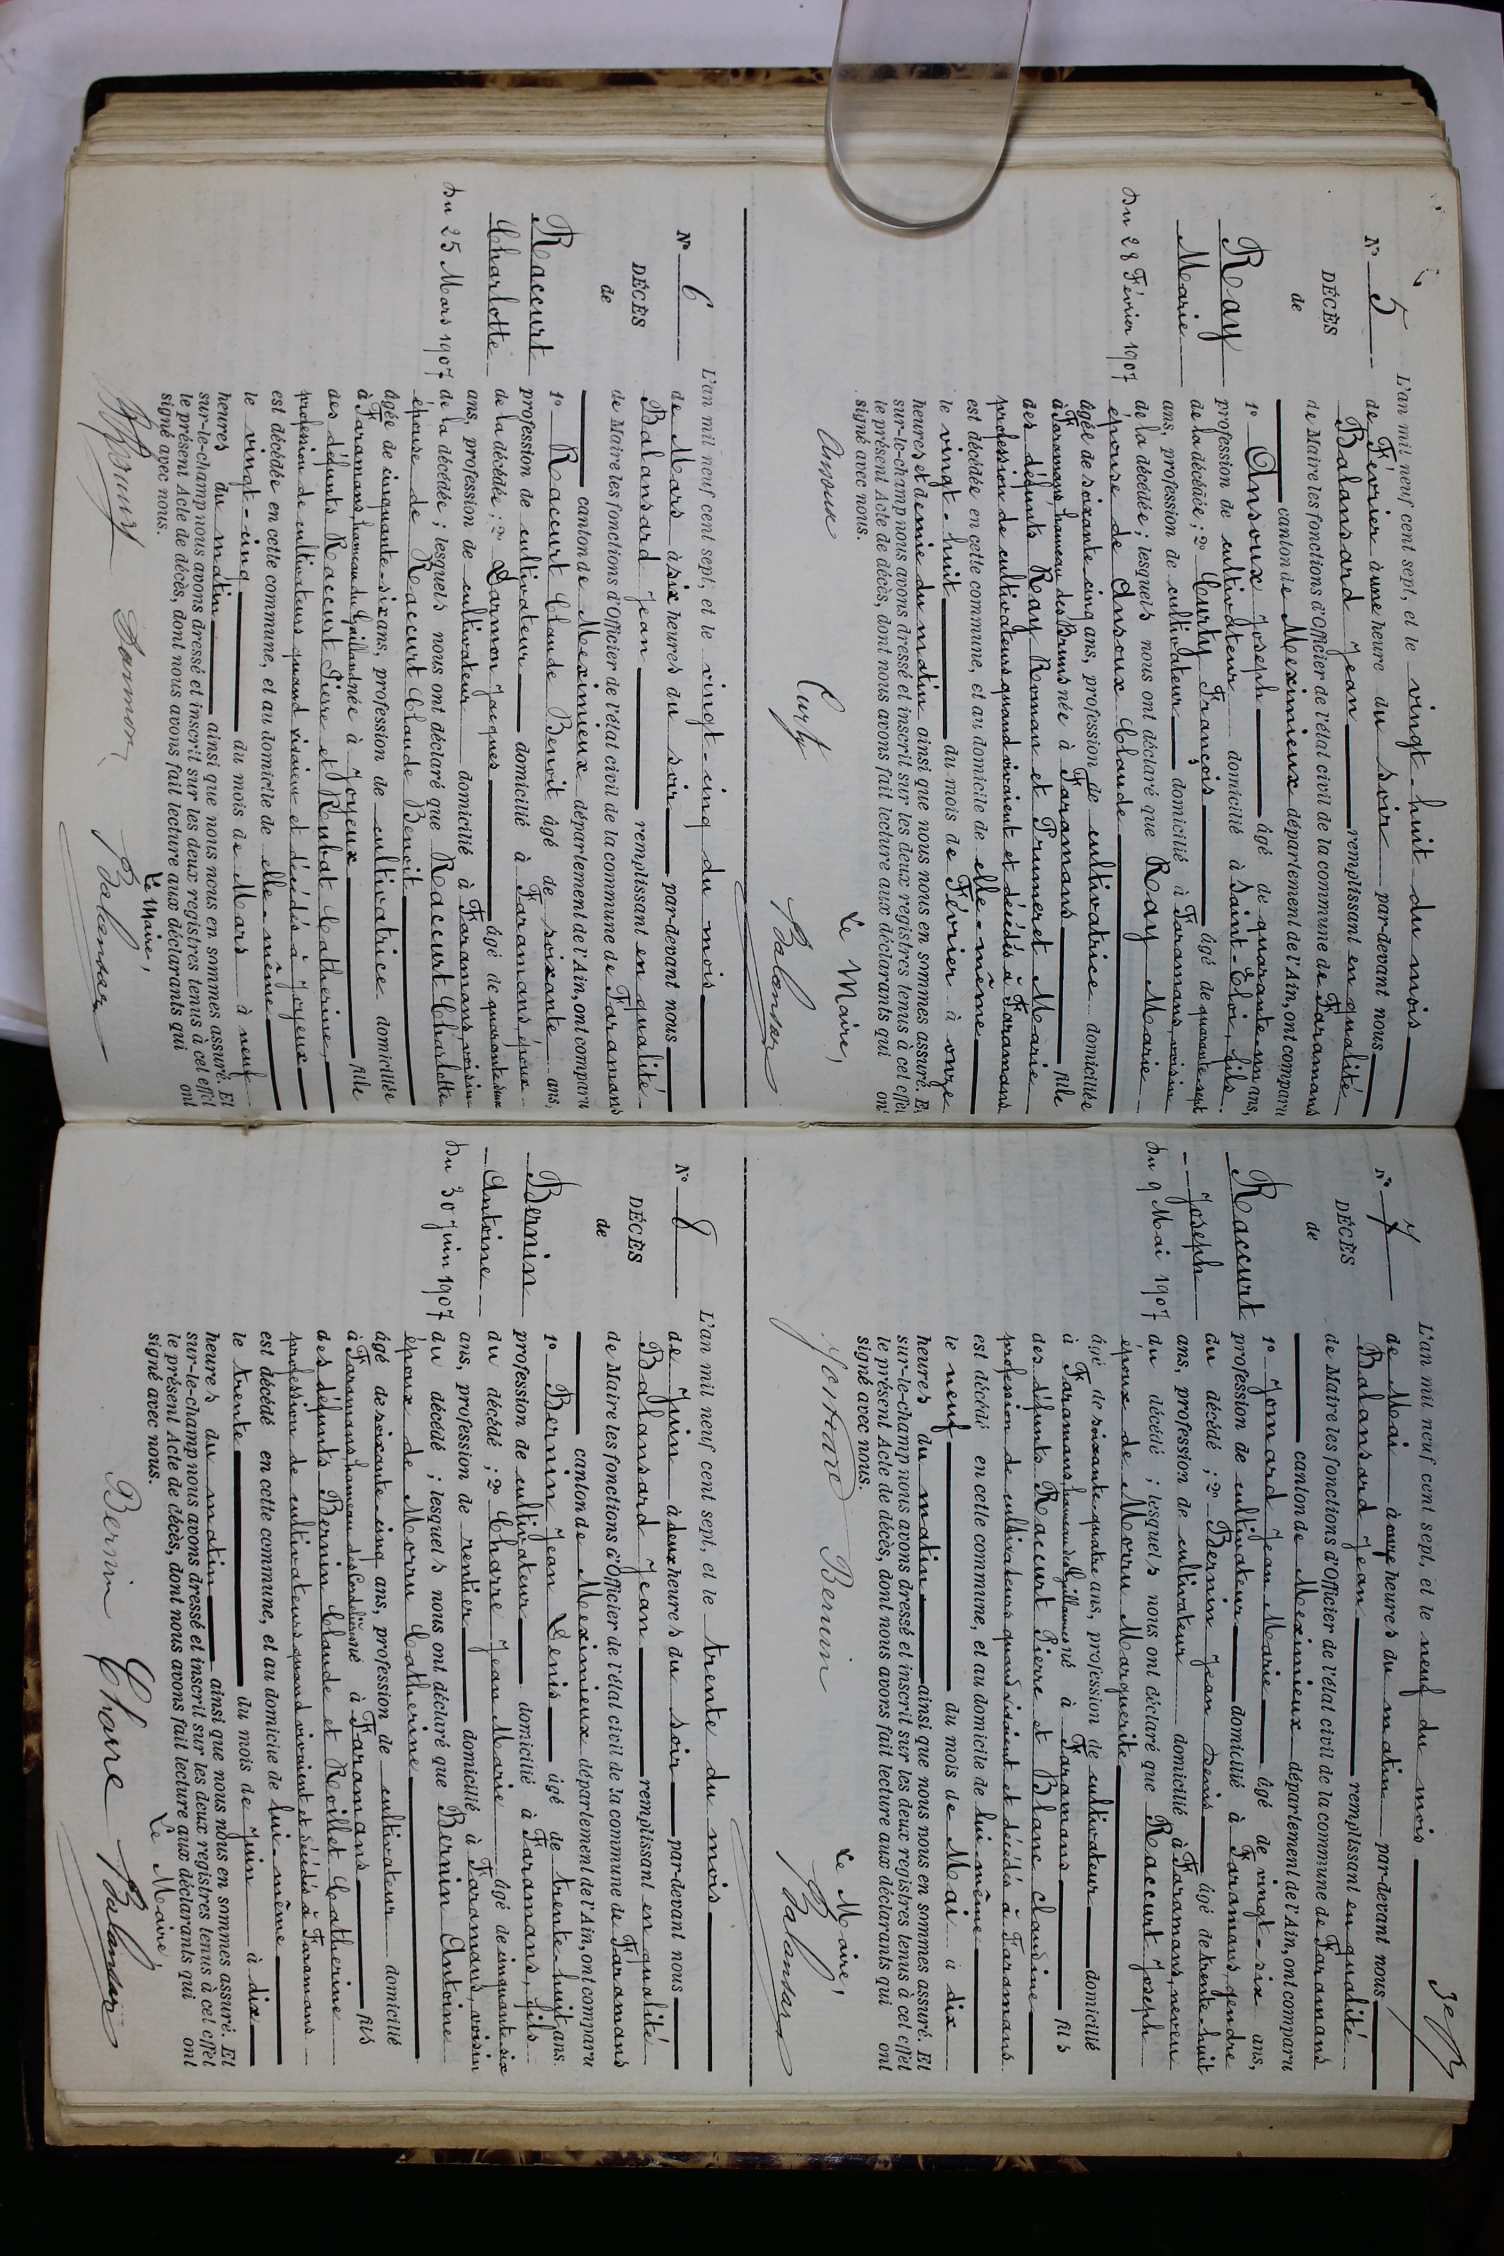 N° 5
DÉCÈS
de
Ray
Marie
Du 28 Février 1907
L'an mil neuf cent sept, et le vingt-huit du mois
de Février à une heure du soir par-devant nous
Balansard Jean remplissant en qualité
de Maire les fonctions d'Officier de l'état civil de la commune de Faramans
canton de Meximieux département de l'Ain, ont comparu
1° Ansoux Joseph âgé de quarante-un ans,
profession de cultivateur domicilié à Saint-Eloi, fils
de la décédée ; 2° Curty François âgé de quarante-sept
ans, profession de cultivateur domicilié à Faramans, voisin
de la décédée ; lesquels nous ont déclaré que Ray Marie
épouse de Ansoux Claude
âgée de soixante cinq ans, profession de cultivatrice domiciliée
à Faramans, hameau des Bruns née à Faramans fille
des défunts Ray Romain et Prumeret Marie
profession de cultivateurs quand vivaient et décédés à Faramans
est décédée en cette commune, et au domicile de elle-même
le vingt-huit du mois de Février à onze
heures et demie du matin ainsi que nous nous en sommes assuré. Et
sur-le-champ nous avons dressé et inscrit sur les deux registres tenus à cet effet
le présent Acte de décès, dont nous avons fait lecture aux déclarants qui ont
signé avec nous.
Le Maire,
Ansoux Curty Balansard
N° 6
DÉCÈS
de
Raccurt
Charlotte
Du 25 Mars 1907
L'an mil neuf cent sept, et le vingt-cinq du mois
de Mars à six heures du soir par-devant nous
Balansard Jean remplissant en qualité
de Maire les fonctions d'Officier de l'état civil de la commune de Faramans
canton de Meximieux département de l'Ain, ont comparu
1° Raccurt Claude Benoit âgé de soixante ans,
profession de cultivateur domicilié à Faramans, époux
de la décédée ; 2° Darmon Jacques âgé de quarante deux
ans, profession de cultivateur domicilié à Faramans, voisin
de la décédée ; lesquels nous ont déclaré que Raccurt Charlotte
épouse de Raccurt Claude Benoit
âgée de cinquante-six ans, profession de cultivatrice domiciliée
à Faramans, hameau du née à Joyeux fille
des défunts Raccurt Pierre et Rubat Catherine,
profession de cultivateurs quand vivaient et décédés à Joyeux
est décédée en cette commune, et au domicile de elle-même
le vingt-cinq du mois de Mars à neuf
heures du matin ainsi que nous nous en sommes assuré. Et
sur-le-champ nous avons dressé et inscrit sur les deux registres tenus à cet effet
le présent Acte de décès, dont nous avons fait lecture aux déclarants qui ont
signé avec nous.
Le Maire,
Darmon Balansard
N° 7
DÉCÈS
de
Raccurt
Joseph
Du 9 Mai 1907
L'an mil neuf cent sept, et le neuf du mois
de Mai à onze heures du matin par-devant nous
Balansard Jean remplissant en qualité
de Maire les fonctions d'Officier de l'état civil de la commune de Faramans
canton de Meximieux département de l'Ain, ont comparu
1° Jomard Jean Marie âgé de vingt-six ans,
profession de cultivateur domicilié à Faramans, gendre
du décédé ; 2° Bernin Jean Denis âgé de trente-huit
ans, profession de cultivateur domicilié à Faramans, neveu
du décédé ; lesquels nous ont déclaré que Raccurt Joseph
époux de Morru Marguerite
âgé de soixante-quatre ans, profession de cultivateur domicilié
à Faramans, hameau des né à Faramans fils
des défunts Raccurt Pierre et Blanc Claudine
profession de cultivateurs quand vivaient et décédés à Faramans
est décédé en cette commune, et au domicile de lui-même
le neuf du mois de Mai à dix
heures du matin ainsi que nous nous en sommes assuré. Et
sur-le-champ nous avons dressé et inscrit sur les deux registres tenus à cet effet
le présent Acte de décès, dont nous avons fait lecture aux déclarants qui ont
signé avec nous.
Le Maire,
Jomard Bernin Balansard
N° 8
DÉCÈS
de
Bernin
Antoine
Du 30 Juin 1907
L'an mil neuf cent sept, et le trente du mois
de Juin à deux heures du soir par-devant nous
Balansard Jean remplissant en qualité
de Maire les fonctions d'Officier de l'état civil de la commune de Faramans
canton de Meximieux département de l'Ain, ont comparu
1° Bernin Jean Denis âgé de trente-huit ans.
profession de cultivateur domicilié à Faramans, fils
du décédé ; 2° Charre Jean Marie âgé de cinquante six
ans, profession de rentier domicilié à Faramans, voisin
du décédé ; lesquels nous ont déclaré que Bernin Antoine
époux de Morru Catherine
âgé de soixante cinq ans, profession de cultivateur domicilié
à Faramans, hameau des né à Faramans fils
des défunts Bernin Claude et Roillet Catherine
profession de cultivateurs quand vivaient et décédés à Faramans
est décédé en cette commune, et au domicile de lui-même
le trente du mois de Juin à dix
heures du matin ainsi que nous nous en sommes assuré. Et
sur-le-champ nous avons dressé et inscrit sur les deux registres tenus à cet effet
le présent Acte de décès, dont nous avons fait lecture aux déclarants qui ont
signé avec nous.
Le Maire,
Bernin Charre Balansard